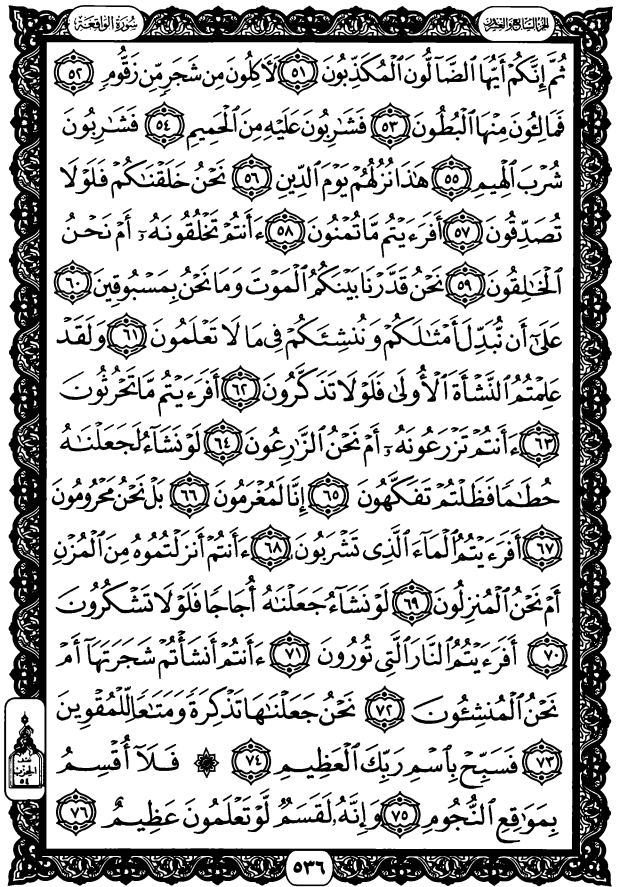 الجزء السابع والعشرون
سورة الواقعة
ثُمَّ إِنَّكُمْ أَيُّهَا ٱلضَّآلُّونَ ٱلْمُكَذِّبُونَ ٥١ لَأَكِلُونَ مِن شَجَرٍ مِّن زَقُّومٍ ٥٢
فَمَالِـُٔونَ مِنْهَا ٱلْبُطُونَ ٥٣ فَشَٰرِبُونَ عَلَيْهِ مِنَ ٱلْحَمِيمِ ٥٤ فَشَٰرِبُونَ
شُرْبَ ٱلْهِيمِ ٥٥ هَٰذَا نُزُلُهُمْ يَوْمَ ٱلدِّينِ ٥٦ نَحْنُ خَلَقْنَٰكُمْ فَلَوْلَا
تُصَدِّقُونَ ٥٧ أَفَرَءَيْتُم مَّا تُمْنُونَ ٥٨ ءَأَنتُمْ تَخْلُقُونَهُۥٓ أَمْ نَحْنُ
ٱلْخَٰلِقُونَ ٥٩ نَحْنُ قَدَّرْنَا بَيْنَكُمُ ٱلْمَوْتَ وَمَا نَحْنُ بِمَسْبُوقِينَ ٦٠
عَلَىٰٓ أَن نُّبَدِّلَ أَمْثَٰلَكُمْ وَنُنشِئَكُمْ فِى مَا لَا تَعْلَمُونَ ٦١ وَلَقَدْ
عَلِمْتُمُ ٱلنَّشْأَةَ ٱلْأُولَىٰ فَلَوْلَا تَذَكَّرُونَ ٦٢ أَفَرَءَيْتُم مَّا تَحْرُثُونَ
٦٣ ءَأَنتُمْ تَزْرَعُونَهُۥٓ أَمْ نَحْنُ ٱلزَّٰرِعُونَ ٦٤ لَوْ نَشَآءُ لَجَعَلْنَٰهُ
حُطَٰمًا فَظَلْتُمْ تَفَكَّهُونَ ٦٥ إِنَّا لَمُغْرَمُونَ ٦٦ بَلْ نَحْنُ مَحْرُومُونَ
٦٧ أَفَرَءَيْتُمُ ٱلْمَآءَ ٱلَّذِى تَشْرَبُونَ ٦٨ ءَأَنتُمْ أَنزَلْتُمُوهُ مِنَ ٱلْمُزْنِ
أَمْ نَحْنُ ٱلْمُنزِلُونَ ٦٩ لَوْ نَشَآءُ جَعَلْنَٰهُ أُجَاجًا فَلَوْلَا تَشْكُرُونَ
٧٠ أَفَرَءَيْتُمُ ٱلنَّارَ ٱلَّتِى تُورُونَ ٧١ ءَأَنتُمْ أَنشَأْتُمْ شَجَرَتَهَآ أَمْ
نَحْنُ ٱلْمُنشِـُٔونَ ٧٢ نَحْنُ جَعَلْنَٰهَا تَذْكِرَةً وَمَتَٰعًا لِّلْمُقْوِينَ
٧٣ فَسَبِّحْ بِٱسْمِ رَبِّكَ ٱلْعَظِيمِ ٧٤ ۞ فَلَآ أُقْسِمُ
بِمَوَٰقِعِ ٱلنُّجُومِ ٧٥ وَإِنَّهُۥ لَقَسَمٌ لَّوْ تَعْلَمُونَ عَظِيمٌ ٧٦
الحزب
٥٤
٥٣٦